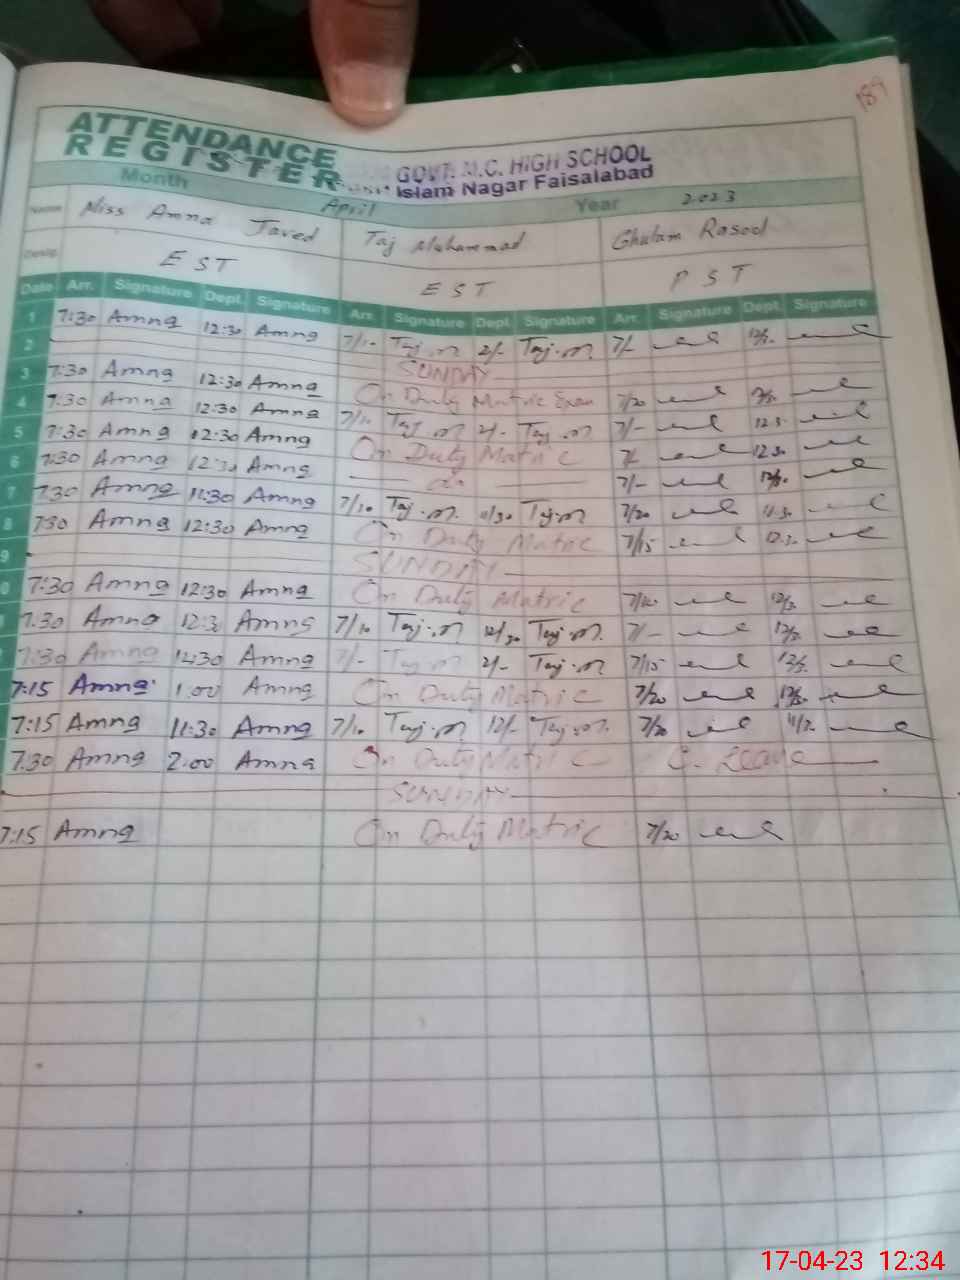 189
ATTENDANCE
REGISTER
GOVT. M.C. HIGH SCHOOL
Islam Nagar Faisalabad
Month April Year 2023
Name Miss Amna Javed Taj Muhammad Ghulam Rasool
Desig. EST EST PST
Date Arr. Signature Dept. Signature Arr. Signature Dept. Signature Arr. Signature Dept. Signature
1 7:30 Amna 12:30 Amna 7/10 Taj.m 2/- Taj.m 7/-
2 SUNDAY
3 7:30 Amna 12:30 Amna On Duty Matric Exam 7/20
4 7:30 Amna 12:30 Amna 7/10 Taj.m 2/- Taj.m 7/- 12.3.
5 7:30 Amna 12:30 Amna On Duty Matric 7/- 12.30
6 7:30 Amna 12:30 Amna do 7/- 12/30
7 7:30 Amna 11:30 Amna 7/10 Taj.m. 11/30 Taj.m 7/20 11.30
8 7:30 Amna 12:30 Amna On Duty Matric 7/15
9 SUNDAY
0 7:30 Amna 12:30 Amna On Duty Matric
7:30 Amna 12:30 Amna 7/10 Taj.m 12/30 Taj.m. 7/-
7:30 Amna 12:30 Amna 7/- Taj.m 2/- Taj.m 7/15
7:15 Amna 1:00 Amna On Duty Matric 7/20
7:15 Amna 11:30 Amna 7/10 Taj.m 12/- Taj.m. 7/20
7:30 Amna 2:00 Amna On Duty Matric C. Leave
SUNDAY
7:15 Amna On Duty Matric 7/20
17-04-23 12:34